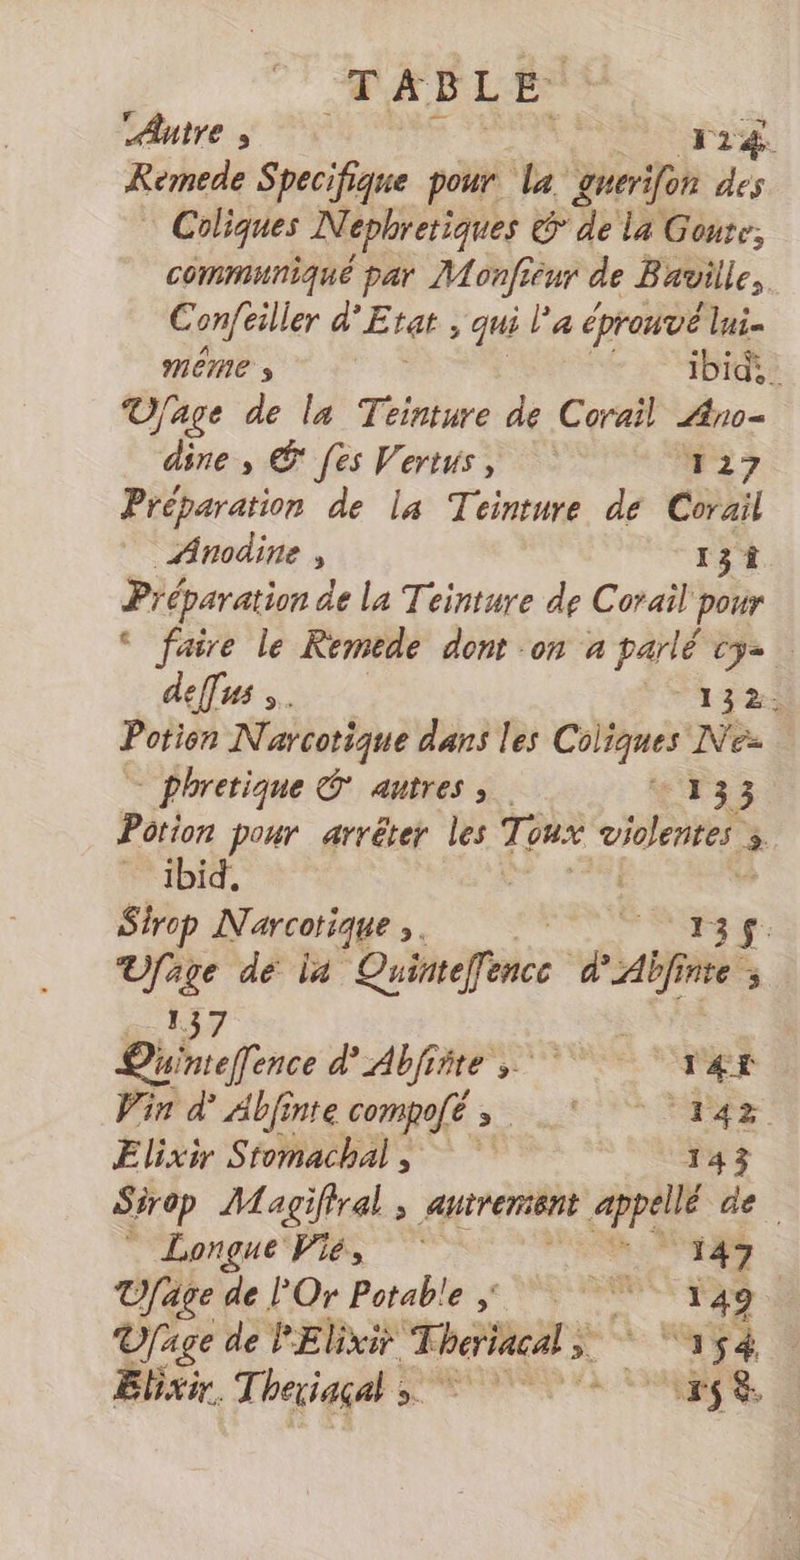 TABLE
Autre, 124
Remede Specifique pour la guerison des
Coliques Nephretiques & de la Goute,
communiqué par Monsieur de Baville,
Conseiller d'Etat, qui l'a éprouvé lui-
même, ibid.
Usage de la Teinture de Corail Ano-
dine, & ses Vertus, 127
Préparation de la Teinture de Corail
Anodine, 131
Préparation de la Teinture de Corail pour
faire le Remede dont on a parlé cy-
dessus, 132
Potion Narcotique dans les Coliques Ne-
phretique & autres, 133
Potion pour arrêter les Toux violentes,
ibid.
Sirop Narcotique, 135
Usage de la Quintessence d'Absinte,
137
Quintessence d'Absinte, 141
Vin d'Absinte composé, 142
Elixir Stomachal, 143
Sirop Magistral, autrement appellé de
Longue Vie, 147
Usage de l'Or Potable, 149
Usage de l'Elixir Theriacal, 154
Elixir Theriacal, 158